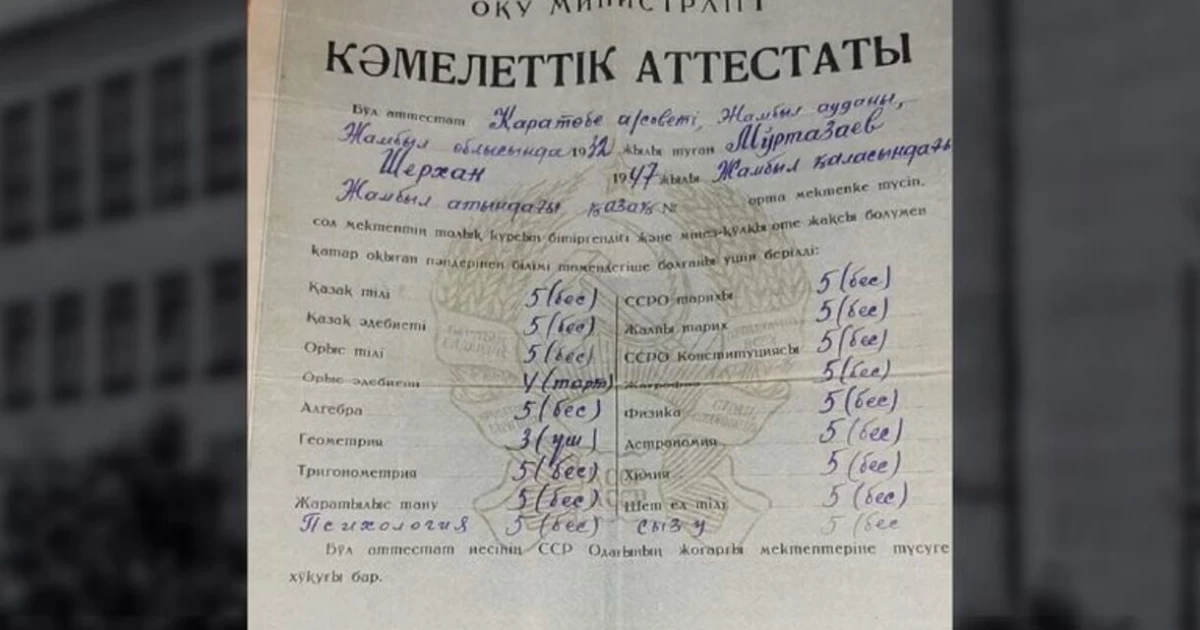 ОҚУ МИНИСТРЛІГІ
КӘМЕЛЕТТІК АТТЕСТАТЫ
Бұл аттестат Қаратөбе а/советі, Жамбыл ауданы,
Жамбыл облысында 1932 жылы туған Мұртазаев
Шерхан 1947 жылы Жамбыл қаласындағы
Жамбыл атындағы қазақ № орта мектепке түсіп,
сол мектептің толық курсын бітіргендігі және мінез-құлқы өте жақсы болумен
қатар оқыған пәндерінен білімі төмендегіше болғаны үшін берілді:
Қазақ тілі 5 (бес) ССРО тарихы 5 (бес)
Қазақ әдебиеті 5 (бес) Жалпы тарих 5 (бес)
Орыс тілі 5 (бес) ССРО Конституциясы 5 (бес)
Орыс әдебиеті 4 (төрт) Жағрафия 5 (бес)
Алгебра 5 (бес) Физика 5 (бес)
Геометрия 3 (үш) Астрономия 5 (бес)
Тригонометрия 5 (бес) Химия 5 (бес)
Жаратылыс тану 5 (бес) Шет ел тілі 5 (бес)
Психология 5 (бес) сызу 5 (бес
Бұл аттестат иесінің ССР Одағының жоғарғы мектептеріне түсуге
хұқуғы бар.